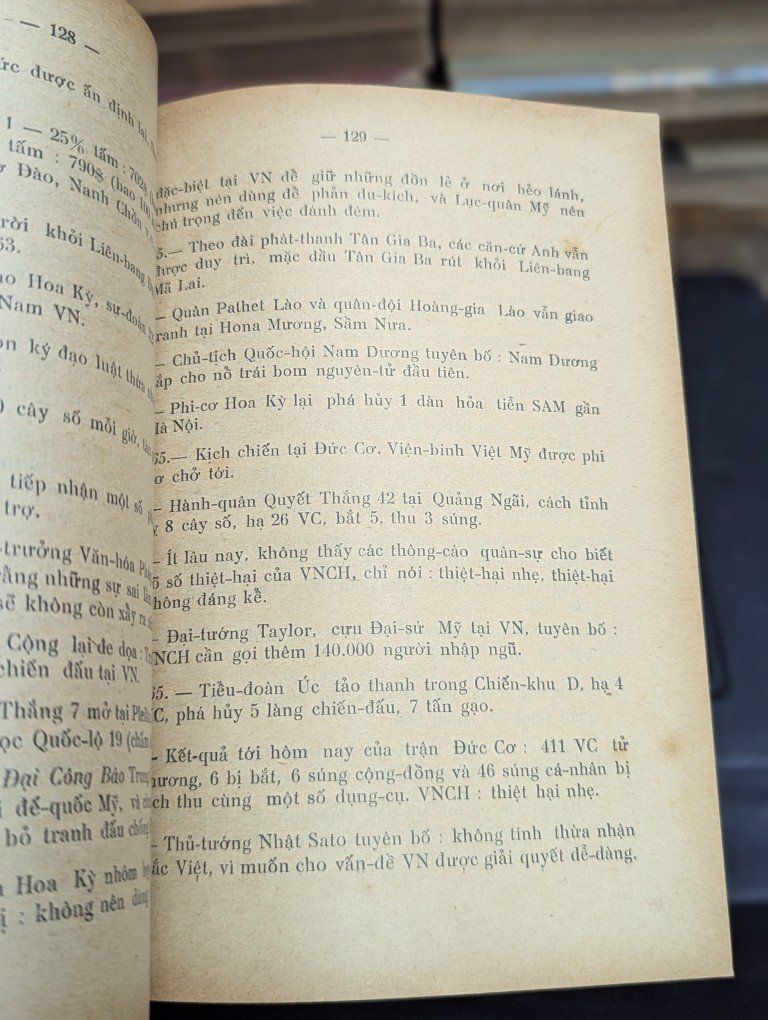 — 128 —
được ấn định lại
1 — 25% tấm : 702$
tấm : 790$ (bao 100
Đào, Nanh Chồn
rời khỏi Liên-bang
63.
Hoa Kỳ, sư-đoàn
Nam VN.
ký đạo luật thừa
cây số mỗi giờ,
tiếp nhận một số
trợ.
-trưởng Văn-hóa
rằng những sự sai
sẽ không còn xẩy ra
Cộng lại đe dọa :
chiến đấu tại VN.
Thắng 7 mở tại
Quốc-lộ 19 (chấm
Đại Công Báo
đế-quốc Mỹ, và
bỏ tranh đấu chống
Hoa Kỳ nhóm
: không nên dùng
— 129 —
đặc-biệt tại VN để giữ những đồn lẻ ở nơi hẻo lánh,
nhưng nên dùng để phản du-kích, và Lục-quân Mỹ nên
chú trọng đến việc đánh đêm.
5.— Theo đài phát-thanh Tân Gia Ba, các căn-cứ Anh vẫn
được duy trì, mặc dầu Tân Gia Ba rút khỏi Liên-bang
Mã Lai.
— Quân Pathet Lào và quân-đội Hoàng-gia Lào vẫn giao
tranh tại Hona Mương, Sầm Nưa.
— Chủ-tịch Quốc-hội Nam Dương tuyên bố : Nam Dương
ắp cho nổ trái bom nguyên-tử đầu tiên.
— Phi-cơ Hoa Kỳ lại phá hủy 1 dàn hỏa tiễn SAM gần
Hà Nội.
65.— Kịch chiến tại Đức Cơ. Viện-binh Việt Mỹ được phi
ơ chở tới.
— Hành-quân Quyết Thắng 42 tại Quảng Ngãi, cách tỉnh
ỵ 8 cây số, hạ 26 VC, bắt 5, thu 3 súng.
— Ít lâu nay, không thấy các thông-cáo quân-sự cho biết
õ số thiệt-hại của VNCH, chỉ nói : thiệt-hại nhẹ, thiệt-hại
hông đáng kể.
— Đai-tướng Taylor, cựu Đại-sứ Mỹ tại VN, tuyên bố :
VNCH cần gọi thêm 140.000 người nhập ngũ.
65. — Tiểu-đoàn Úc tảo thanh trong Chiến-khu D, hạ 4
VC, phá hủy 5 làng chiến-đấu, 7 tấn gạo.
— Kết-quả tới hôm nay của trận Đức Cơ : 411 VC tử
hương, 6 bị bắt, 6 súng cộng-đồng và 46 súng cá-nhân bị
ịch thu cùng một số dụng-cụ. VNCH : thiệt hại nhẹ.
— Thủ-tướng Nhật Sato tuyên bố : không tính thừa nhận
ắc Việt, vì muốn cho vấn-đề VN được giải quyết dễ-dàng.